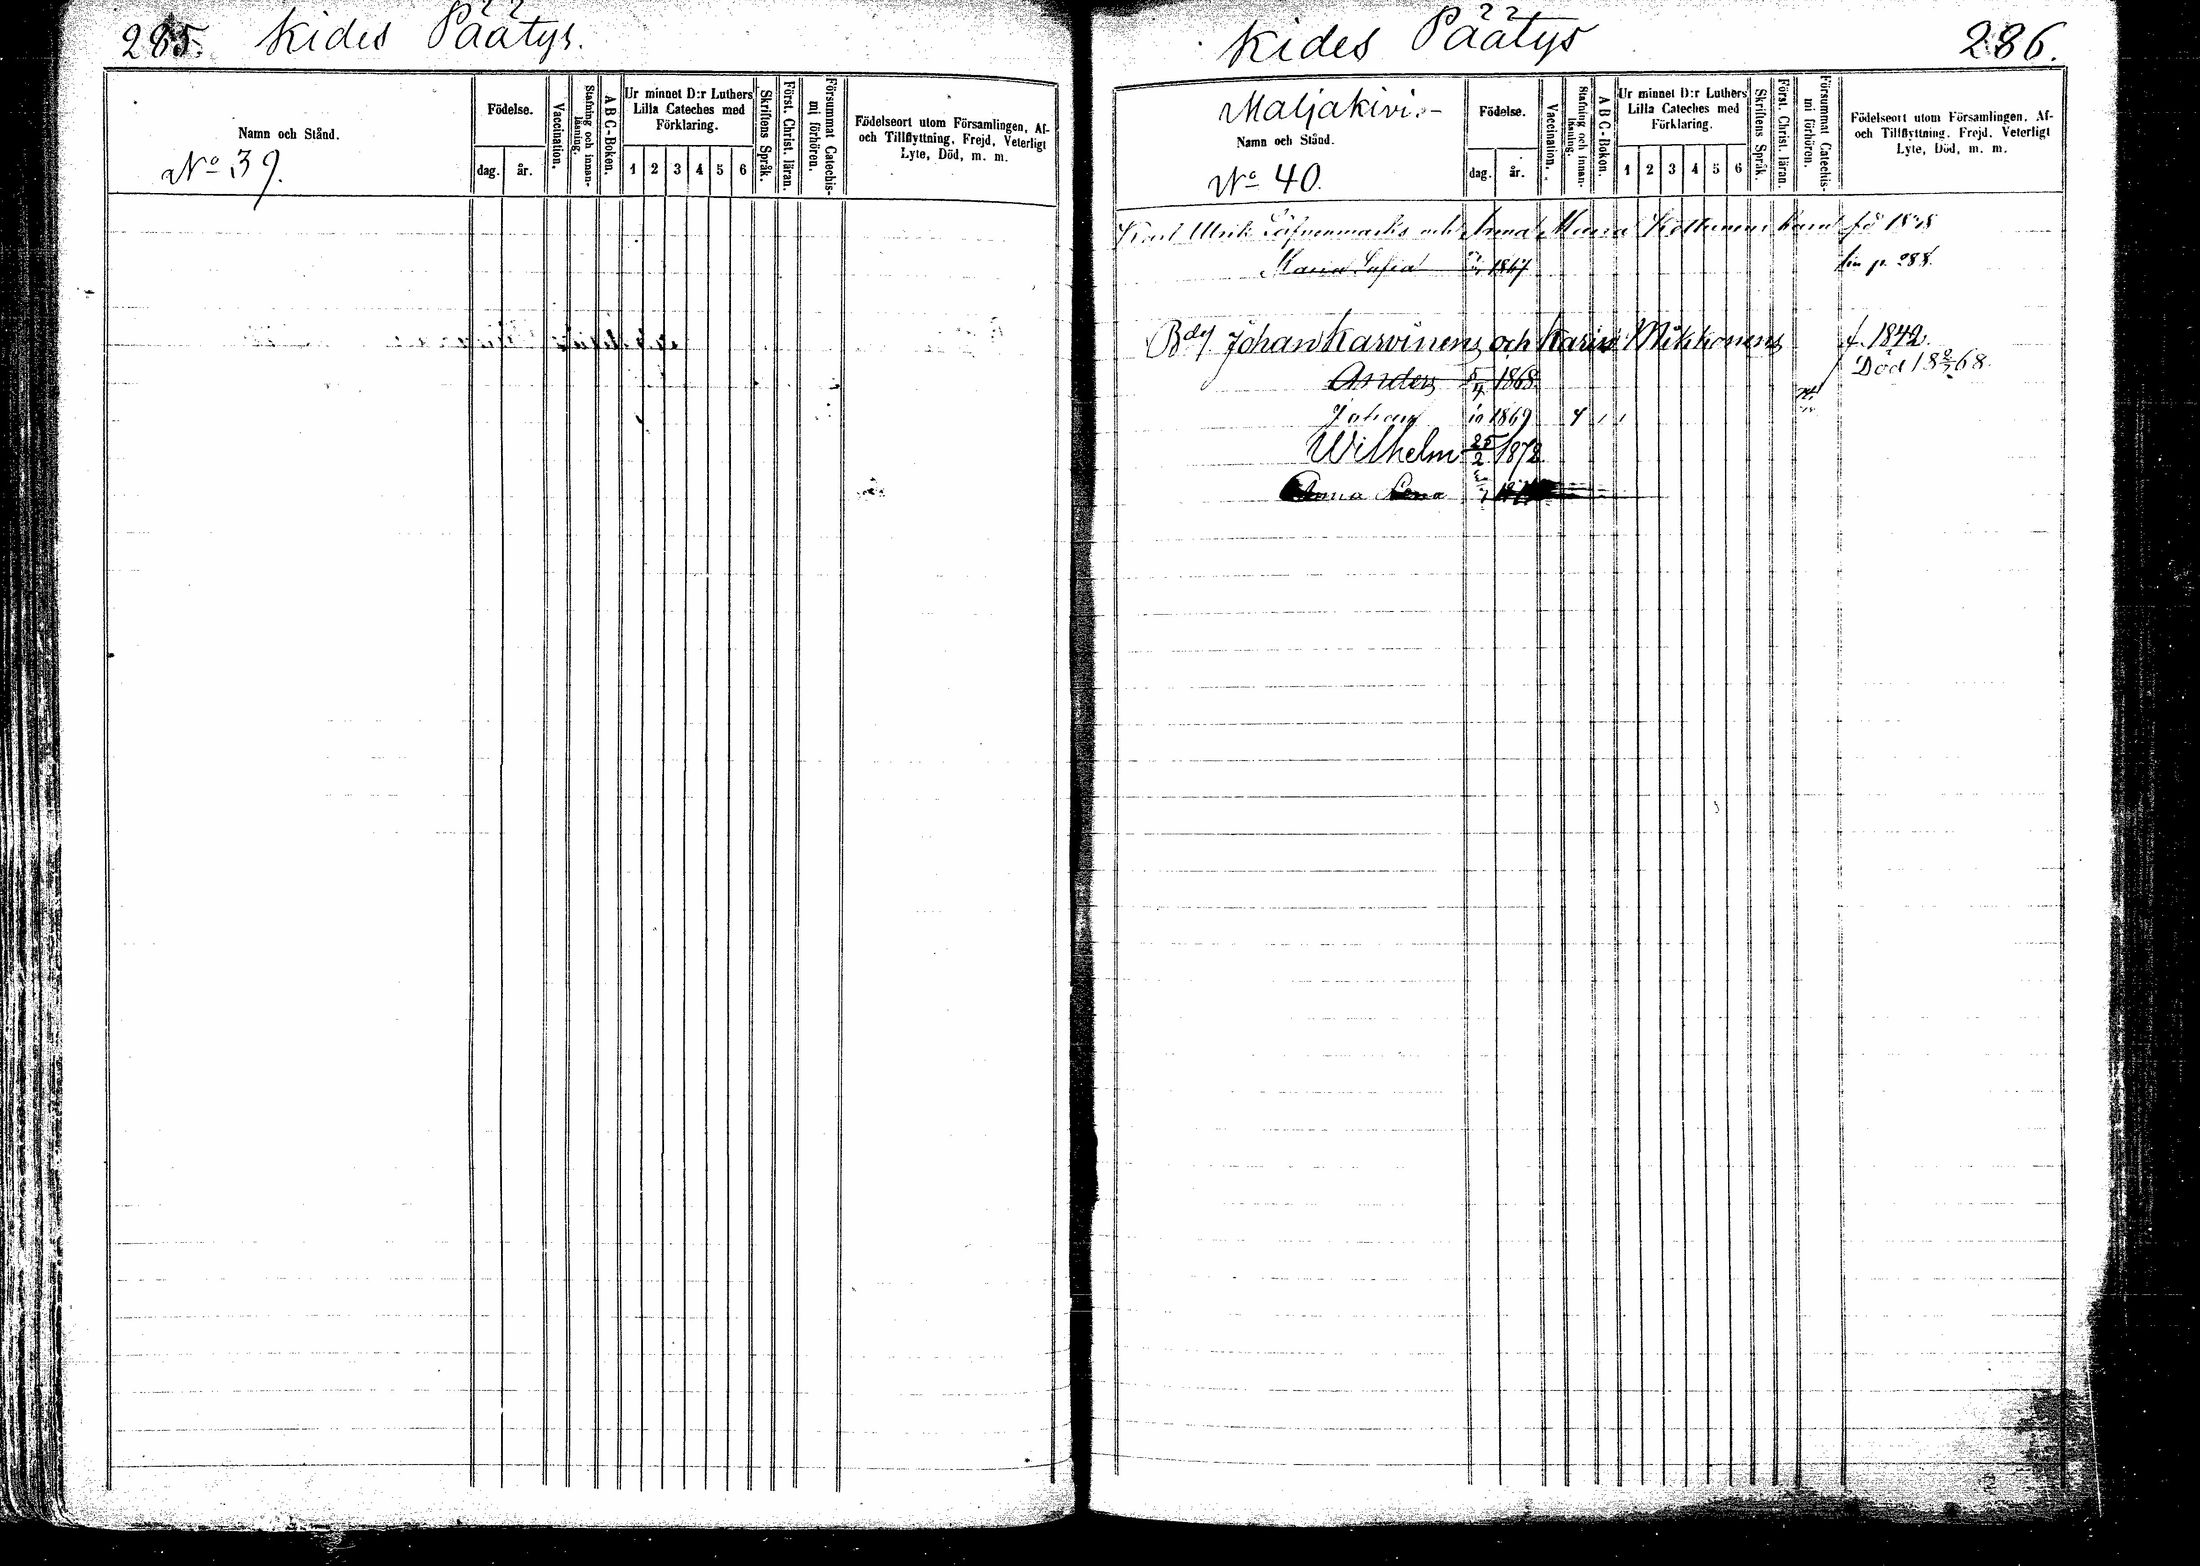 285. Kides Päätys.
Namn och Stånd.
No 39.
Födelse.
dag. år.
Vaccination.
Stafning och innan-
läsning.
A B C-Boken.
Ur minnet D:r Luthers
Lilla Cateches med
Förklaring.
1 2 3 4 5 6
Skriftens Språk.
Först. Christ. läran.
Försummat Catechis-
mi förhören.
Födelseort utom Församlingen, Af-
och Tillflyttning, Frejd, Veterligt
Lyte, Död, m. m.
Kides Päätys 286.
Maljakivi.-
Namn och Stånd.
No 40.
Födelse.
dag. år.
Vaccination.
Stafning och innan-
läsning.
A B C-Boken.
Ur minnet D:r Luthers
Lilla Cateches med
Förklaring.
1 2 3 4 5 6
Skriftens Språk.
Först. Christ. läran.
Försummat Catechis-
mi förhören.
Födelseort utom Församlingen, Af-
och Tillflyttning, Frejd, Veterligt
Lyte, Död, m. m.
Karl Ulrik och Anna Maria Kottunens barn
Maria Sofia 1867 p. 288.
Johan Karvinens och Karin Mikkonens f. 1842
Anders 5/4 1868 Död 18 2/7 68.
Johan 1869
Wilhelm 25/2 1872
Anna Lena